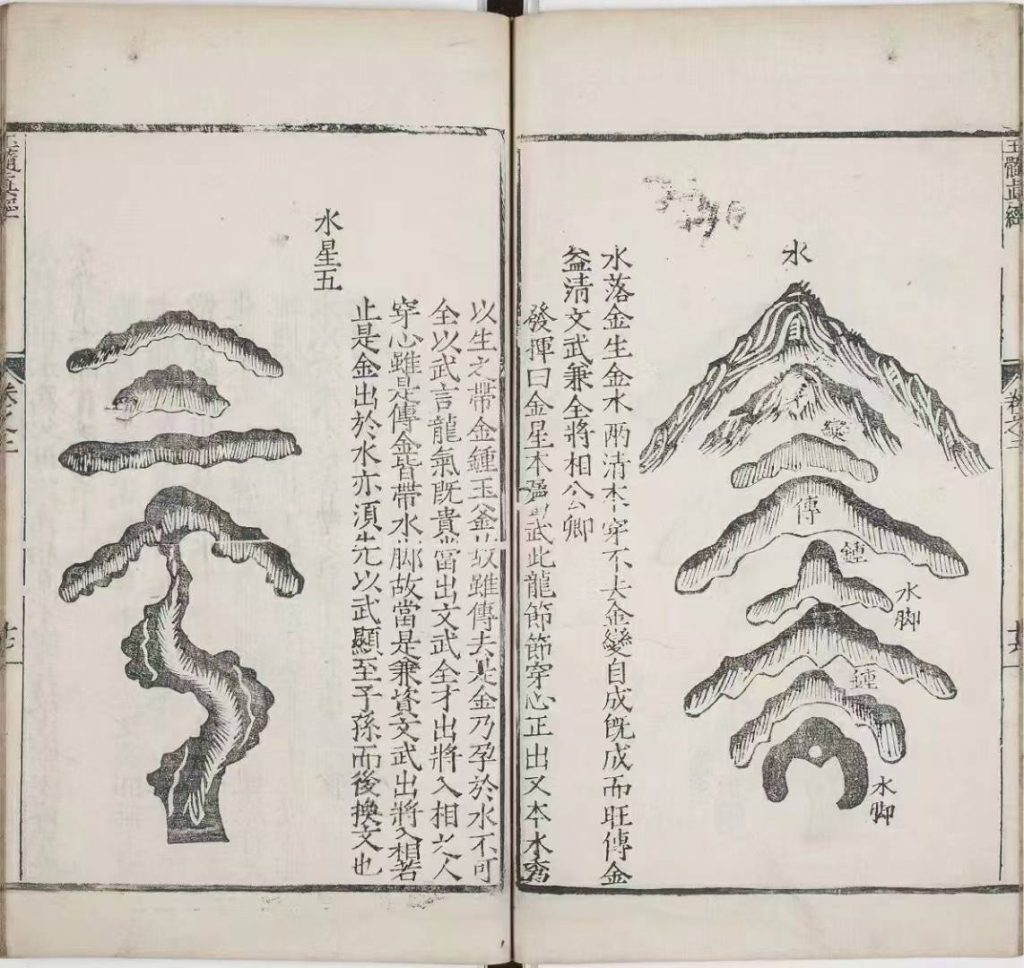 玉髓真經
水
傳
鍾
水脚
鍾
水脚
水落金生金水兩清本穿不去金變自成旣成而旺傳金
益清文武兼全將相公卿
發揮曰金星本 武此龍節節穿心正出又本水
以生之帶金鍾玉釜故雖傳去是金乃孕於水不可
全以武言龍氣旣貴當出文武全才出將入相之人
穿心雖是傳金皆帶水脚故當是兼資文武出將入相若
止是金出於水亦須先以武顯至子孫而後換文也
水星五
髓真經
卷之二